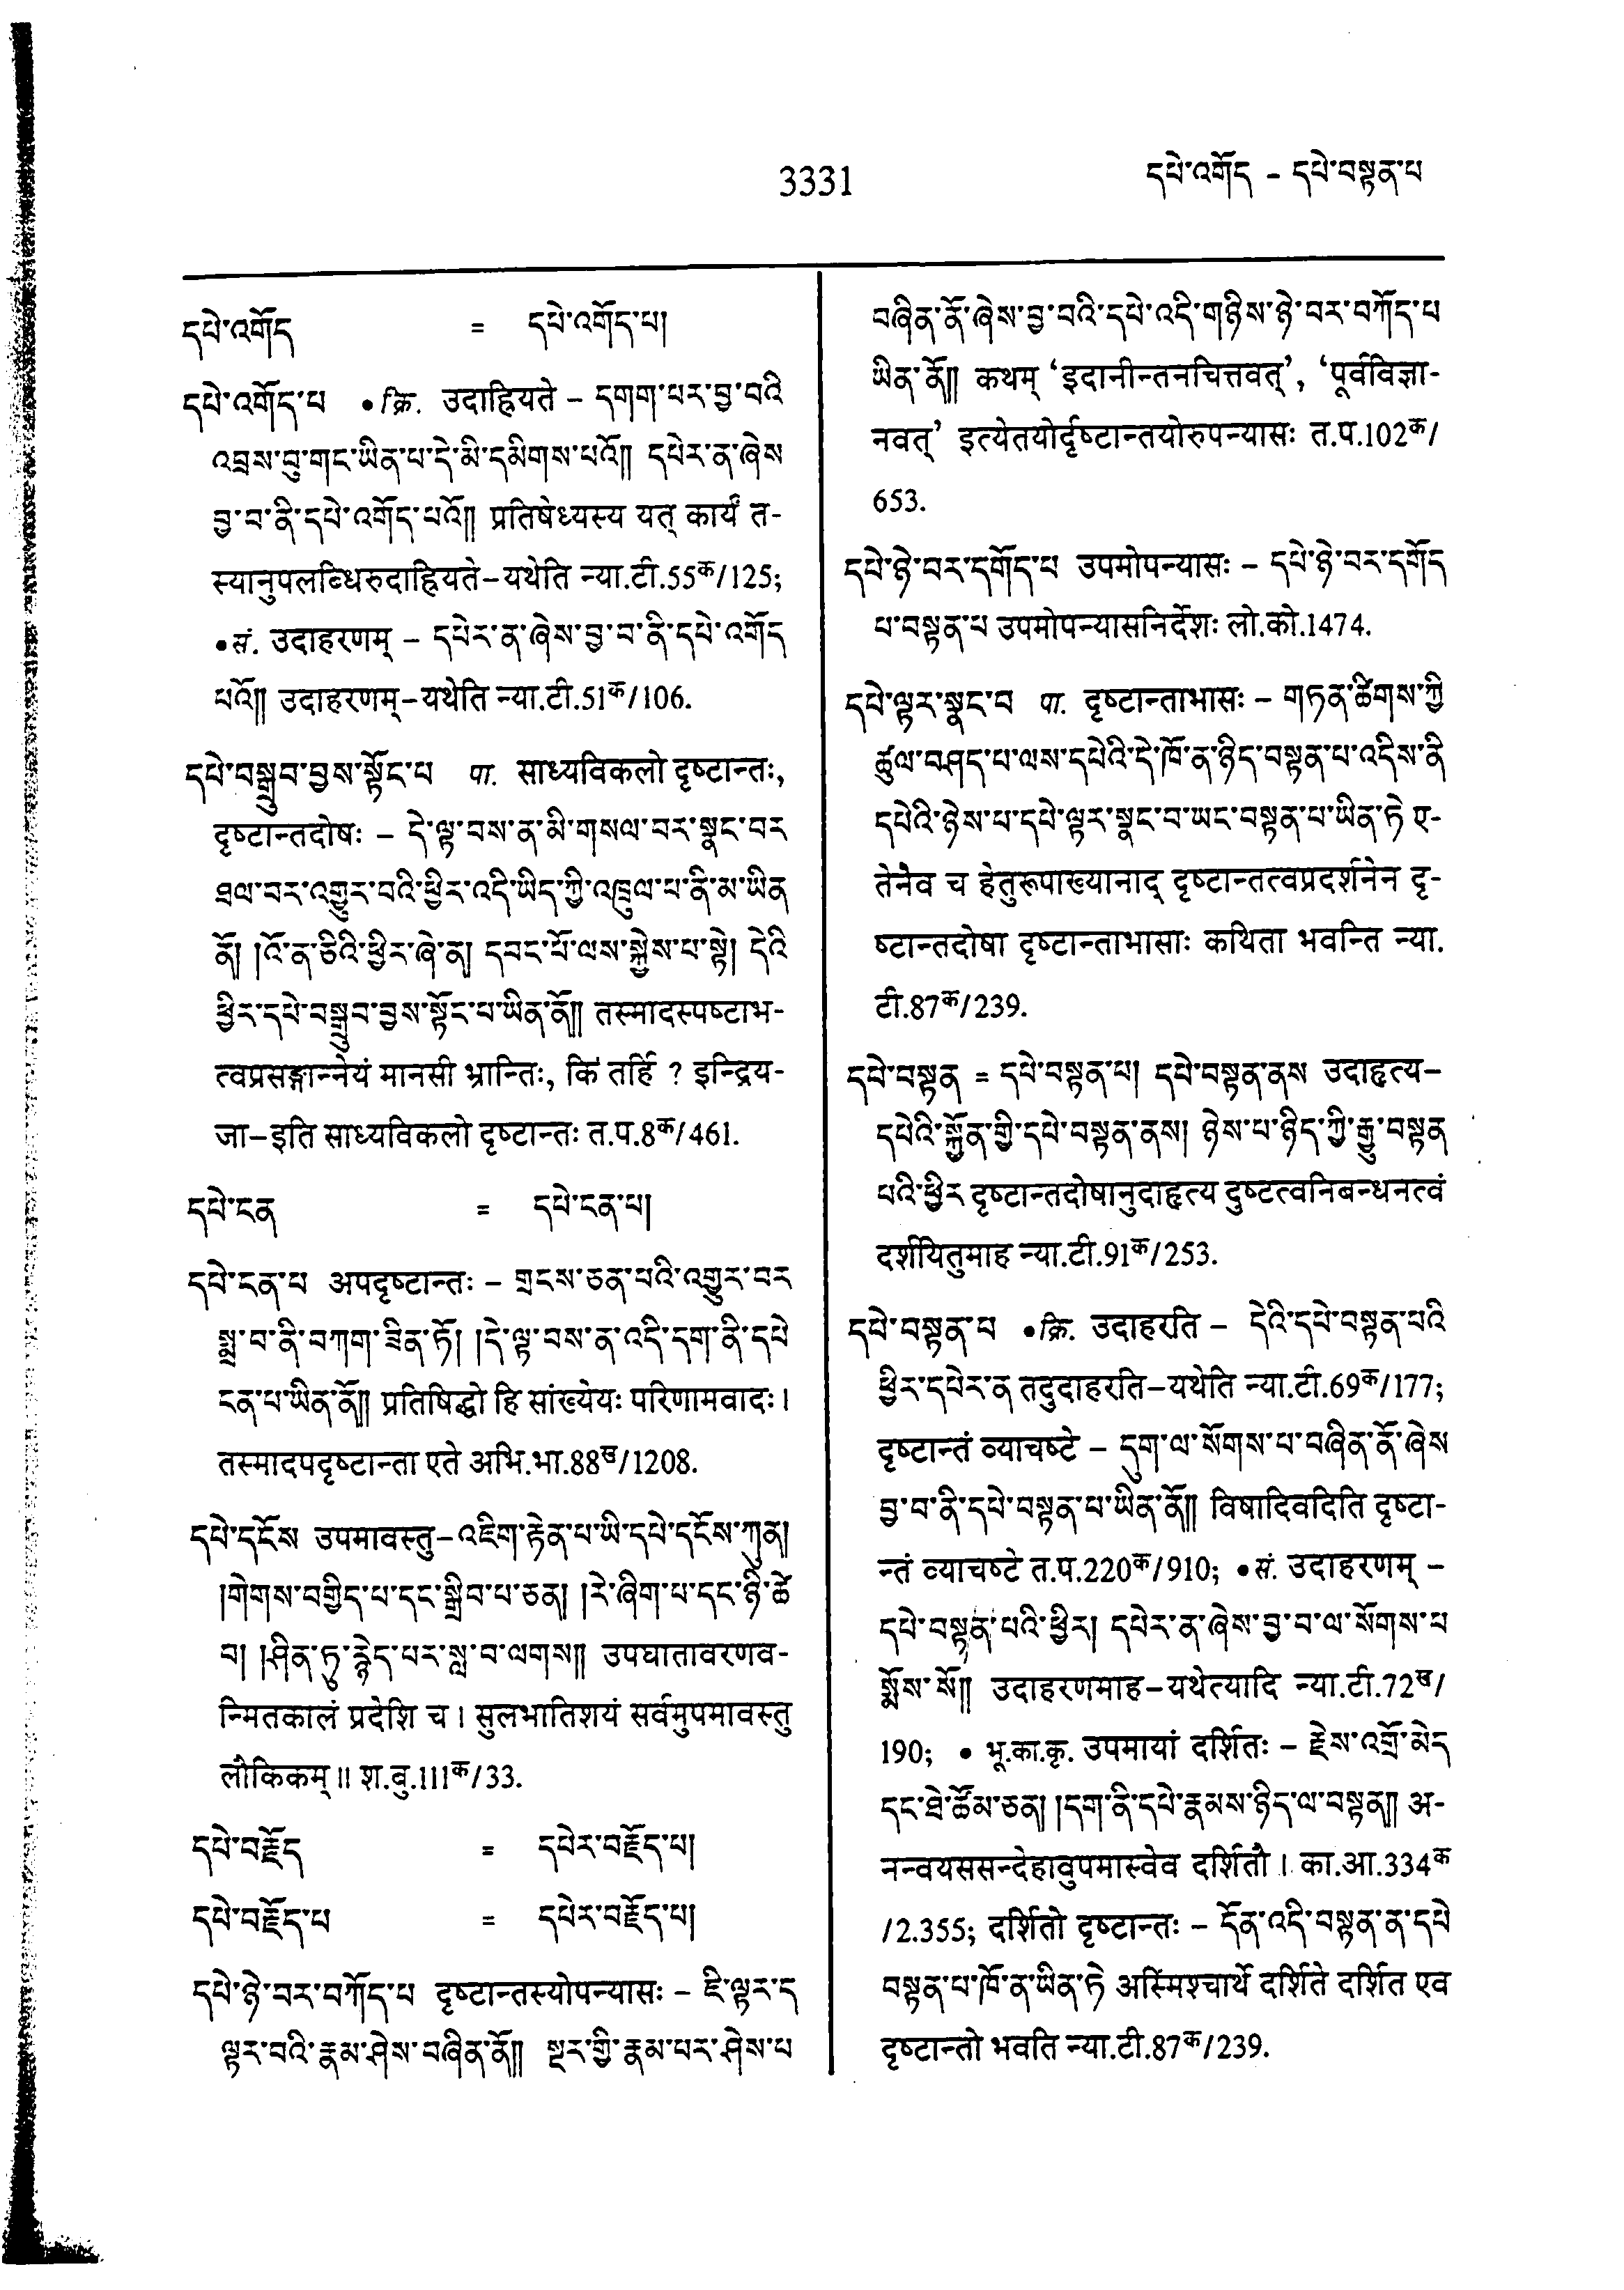 3331
དཔེ་འགོད – དཔེ་བསྟན་པ
དཔེ་འགོད = དཔེ་འགོད་པ།
དཔེ་འགོད་པ •क्रि. उदाह्रियते – དགག་པར་བྱ་བའི
འབྲས་བུ་གང་ཡིན་པ་དེ་མི་དམིགས་པའོ༎ དཔེར་ན་ཞེས
བྱ་བ་ནི་དཔེ་འགོད་པའོ༎ प्रतिषेध्यस्य यत् कार्यं त-
स्यानुपलब्धिरुदाह्रियते–यथेति न्या.टी.55क/125;
•सं. उदाहरणम् – དཔེར་ན་ཞེས་བྱ་བ་ནི་དཔེ་འགོད
པའོ༎ उदाहरणम्–यथेति न्या.टी.51क/106.
དཔེ་བསྒྲུབ་བྱས་སྟོང་པ पा. साध्यविकलो दृष्टान्तः,
दृष्टान्तदोषः – དེ་ལྟ་བས་ན་མི་གསལ་བར་སྣང་བར
ཐལ་བར་འགྱུར་བའི་ཕྱིར་འདི་ཡིད་ཀྱི་འཁྲུལ་པ་ནི་མ་ཡིན
ནོ། །འོ་ན་ཅིའི་ཕྱིར་ཞེ་ན། དབང་པོ་ལས་སྐྱེས་པ་སྟེ། དེའི
ཕྱིར་དཔེ་བསྒྲུབ་བྱས་སྟོང་པ་ཡིན་ནོ༎ तस्मादस्पष्टाभ-
त्वप्रसङ्गान्नेयं मानसी भ्रान्तिः, किं तर्हि ? इन्द्रिय-
जा–इति साध्यविकलो दृष्टान्तः त.प.8क/461.
དཔེ་ངན = དཔེ་ངན་པ།
དཔེ་ངན་པ अपदृष्टान्तः – གྲངས་ཅན་པའི་འགྱུར་བར
སྨྲ་བ་ནི་བཀག་ཟིན་ཏོ། །དེ་ལྟ་བས་ན་འདི་དག་ནི་དཔེ
ངན་པ་ཡིན་ནོ༎ प्रतिषिद्धो हि सांख्येयः परिणामवादः।
तस्मादपदृष्टान्ता एते अभि.भा.88ख/1208.
དཔེ་དངོས उपमावस्तु–འཇིག་རྟེན་པ་ཡི་དཔེ་དངོས་ཀུན།
།གེགས་བགྱིད་པ་དང་སྒྲིབ་པ་ཅན། །རེ་ཞིག་པ་དང་ཉི་ཚེ
བ། །ཤིན་ཏུ་རྙེད་པར་སླ་བ་ལགས༎ उपघातावरणव-
न्मितकालं प्रदेशि च। सुलभातिशयं सर्वमुपमावस्तु
लौकिकम्॥ श.बु.111क/33.
དཔེ་བརྗོད = དཔེར་བརྗོད་པ།
དཔེ་བརྗོད་པ = དཔེར་བརྗོད་པ།
དཔེ་ཉེ་བར་བཀོད་པ दृष्टान्तस्योपन्यासः – ཇི་ལྟར་ད
ལྟར་བའི་རྣམ་ཤེས་བཞིན་ནོ༎ སྔར་གྱི་རྣམ་པར་ཤེས་པ
བཞིན་ནོ་ཞེས་བྱ་བའི་དཔེ་འདི་གཉིས་ཉེ་བར་བཀོད་པ
ཡིན་ནོ༎ कथम् ‘इदानीन्तनचित्तवत्’, ‘पूर्वविज्ञा-
नवत्’ इत्येतयोर्दृष्टान्तयोरुपन्यासः त.प.102क/
653.
དཔེ་ཉེ་བར་དགོད་པ उपमोपन्यासः – དཔེ་ཉེ་བར་དགོད
པ་བསྟན་པ उपमोपन्यासनिर्देशः लो.को.1474.
དཔེ་ལྟར་སྣང་བ पा. दृष्टान्ताभासः – གཏན་ཚིགས་ཀྱི
ཚུལ་བཤད་པ་ལས་དཔེའི་དེ་ཁོ་ན་ཉིད་བསྟན་པ་འདིས་ནི
དཔེའི་ཉེས་པ་དཔེ་ལྟར་སྣང་བ་ཡང་བསྟན་པ་ཡིན་ཏེ ए-
तेनैव च हेतुरूपाख्यानाद् दृष्टान्तत्वप्रदर्शनेन दृ-
ष्टान्तदोषा दृष्टान्ताभासाः कथिता भवन्ति न्या.
टी.87क/239.
དཔེ་བསྟན = དཔེ་བསྟན་པ། དཔེ་བསྟན་ནས उदाहृत्य–
དཔེའི་སྐྱོན་གྱི་དཔེ་བསྟན་ནས། ཉེས་པ་ཉིད་ཀྱི་རྒྱུ་བསྟན
པའི་ཕྱིར दृष्टान्तदोषानुदाहृत्य दुष्टत्वनिबन्धनत्वं
दर्शयितुमाह न्या.टी.91क/253.
དཔེ་བསྟན་པ •क्रि. उदाहरति – དེའི་དཔེ་བསྟན་པའི
ཕྱིར་དཔེར་ན तदुदाहरति–यथेति न्या.टी.69क/177;
दृष्टान्तं व्याचष्टे – དུག་ལ་སོགས་པ་བཞིན་ནོ་ཞེས
བྱ་བ་ནི་དཔེ་བསྟན་པ་ཡིན་ནོ༎ विषादिवदिति दृष्टा-
न्तं व्याचष्टे त.प.220क/910; •सं. उदाहरणम् –
དཔེ་བསྟན་པའི་ཕྱིར། དཔེར་ན་ཞེས་བྱ་བ་ལ་སོགས་པ
སྨོས་སོ༎ उदाहरणमाह–यथेत्यादि न्या.टी.72ख/
190; • भू.का.कृ. उपमायां दर्शितः – རྗེས་འགྲོ་མེད
དང་ཐེ་ཚོམ་ཅན། །དག་ནི་དཔེ་རྣམས་ཉིད་ལ་བསྟན༎ अ-
नन्वयससन्देहावुपमास्वेव दर्शितौ। का.आ.334क
/2.355; दर्शितो दृष्टान्तः – དོན་འདི་བསྟན་ན་དཔེ
བསྟན་པ་ཁོ་ན་ཡིན་ཏེ अस्मिंश्चार्थे दर्शिते दर्शित एव
दृष्टान्तो भवति न्या.टी.87क/239.